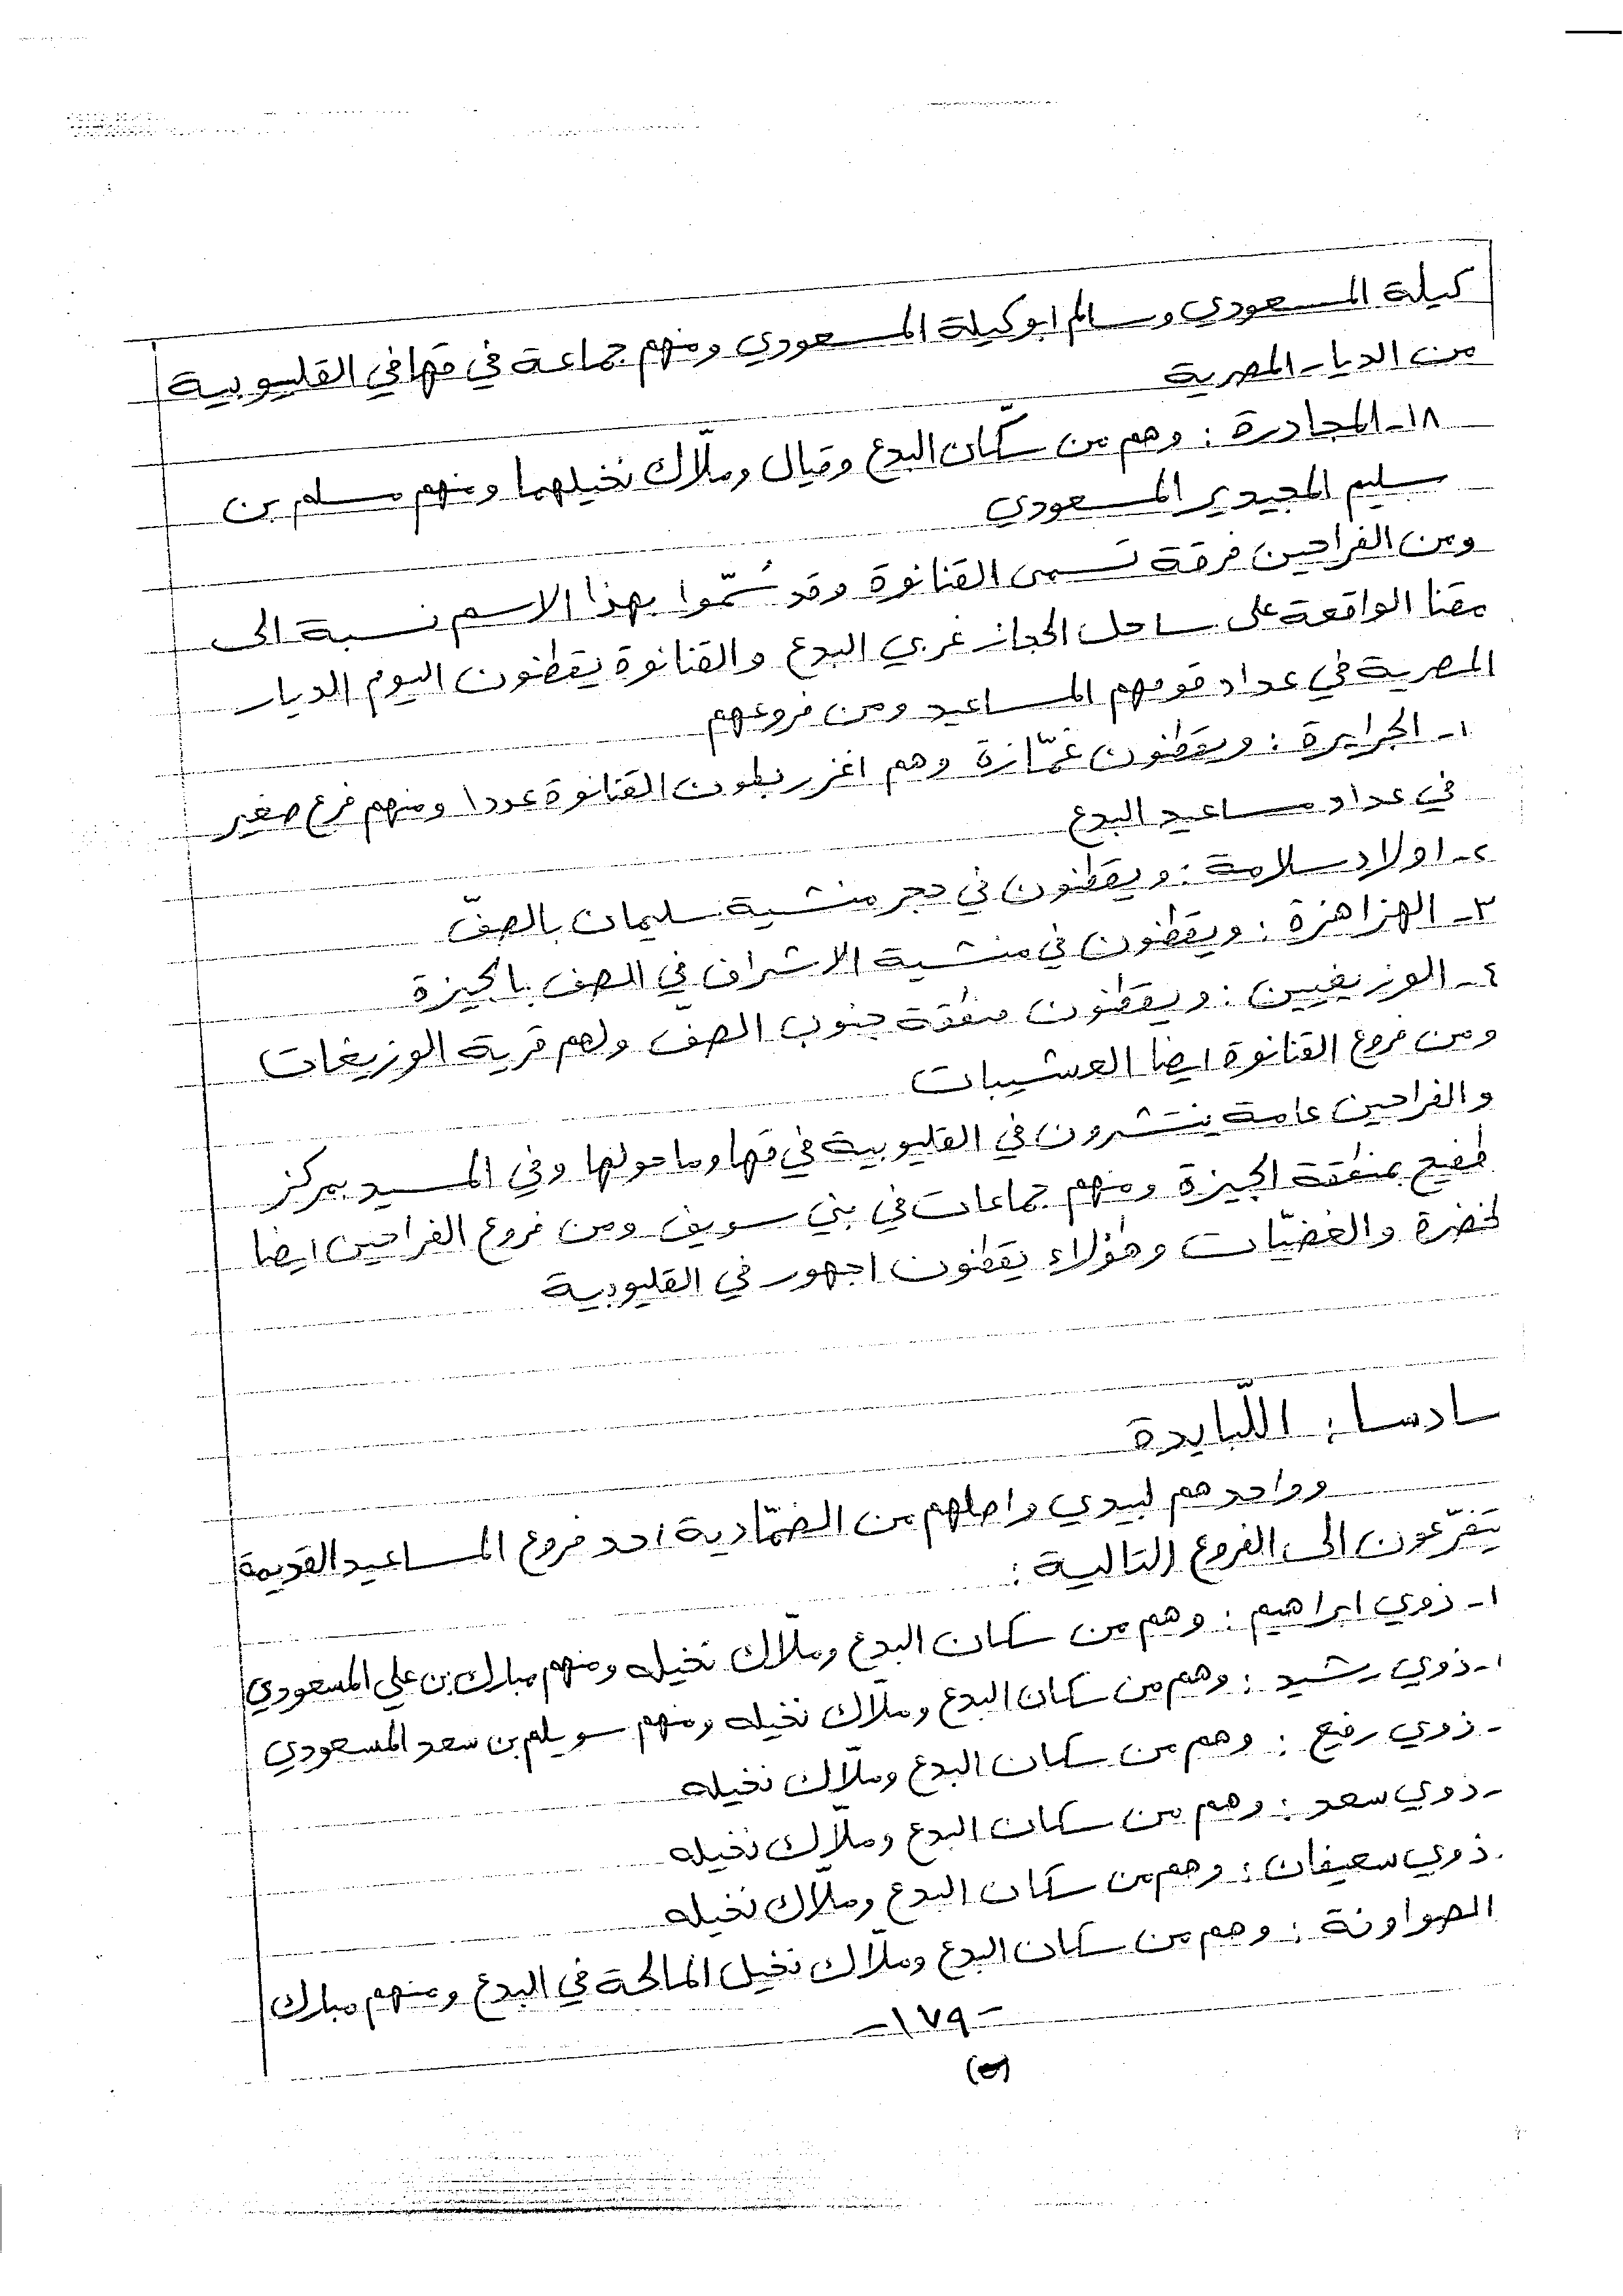 كيلة المسعودي وسالم ابوكيلة المسعودي ومنهم جماعة في قها في القليوبية
من الديار المصرية
١٨- المجادرة : وهم من سكّان البدع وقيال وملّاك نخيلهما ومنهم مسلم بن
سليم المجيدير المسعودي
ومن الفراحين فرقة تسمى القنانوة وقد سُمّوا بهذا الاسم نسبة الى
مقنا الواقعة على ساحل الحجاز غربي البدع والقنانوة يقطنون اليوم الديار
المصرية في عداد قومهم المساعيد ومن فروعهم
١- الجرايرة : ويقطنون غمّازة وهم اغزر بطون القنانوة عددا ومنهم فرع صغير
في عداد مساعيد البدع
٢- اولاد سلامة : ويقطنون في حجر منشية سليمان بالصفّ
٣- الهزاهزة : ويقطنون في منشية الاشراف في الصف بالجيزة
٤- الوزيغيين : ويقطنون منطقة جنوب الصفّ ولهم قرية الوزيغات
ومن فروع القنانوة ايضا العشيبات
والفراحين عامة ينتشرون في القليوبية في قها وما حولها وفي المسيد بمركز
اطفيح بمنطقة الجيزة ومنهم جماعات في بني سويف ومن فروع الفراحين ايضا
لخضرة والغضيّات وهؤلاء يقطنون اجهور في القليوبية
سادسا : اللّبايدة
وواحدهم لبيدي واصلهم من الضمّادية احد فروع المساعيد القديمة
يتفرّعون الى الفروع التالية :
١- ذوي ابراهيم : وهم من سكان البدع وملّاك نخيله ومنهم مبارك بن علي المسعودي
١- ذوي رشيد : وهم من سكان البدع وملّاك نخيله ومنهم سويلم بن سعد المسعودي
- ذوي رفيع : وهم من سكان البدع وملّاك نخيله
- ذوي سعد : وهم من سكان البدع وملّاك نخيله
. ذوي سعيفان : وهم من سكان البدع وملّاك نخيله
الصواونة : وهم من سكان البدع وملّاك نخيل المالحة في البدع ومنهم مبارك
- ١٧٩ -